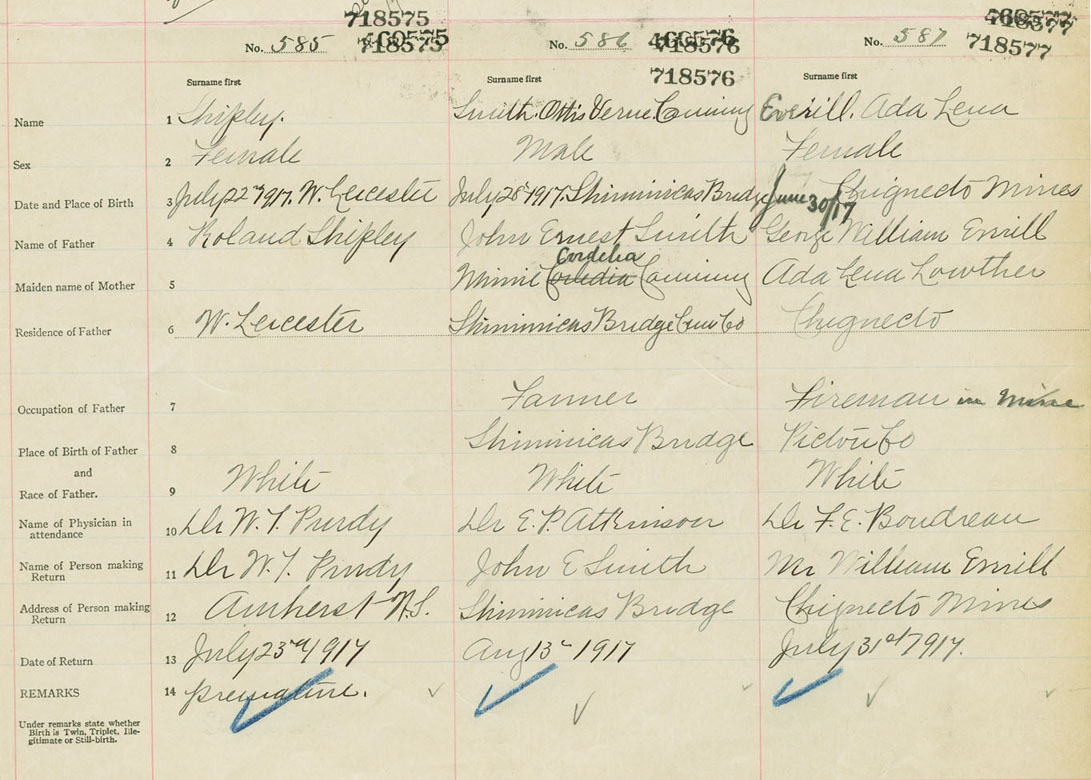 718575
No. 585 718575
No. 586 718576
No. 587 718577
718576
Surname first Surname first Surname first
Name 1 Shipley. Smith. Ottis Verne. Canning Everill. Ada Lena
Sex 2 Female Male Female
Date and Place of Birth 3 July 22nd 1917. W. Leicester July 28th 1917. Shinimicas Bridge June 30/17 Chignecto Mines
Name of Father 4 Roland Shipley John Ernest Smith George William Errill
Cordelia
Maiden name of Mother 5 Minnie Canning Ada Lena Lowther
Residence of Father 6 W. Leicester Shinimicas Bridge Cum Co Chignecto
Occupation of Father 7 Farmer Fireman in Mine
Place of Birth of Father 8 Shinimicas Bridge Pictou Co
and
Race of Father. 9 White White White
Name of Physician in attendance 10 Dr W. T. Purdy Dr E. P. Atkinson Dr F. E. Boudreau
Name of Person making Return 11 Dr W. T. Purdy John E Smith Mr William Errill
Address of Person making Return 12 Amherst N.S. Shinimicas Bridge Chignecto Mines
Date of Return 13 July 23rd 1917 Aug 13th 1917 July 31st 1917.
REMARKS 14 premature.
Under remarks state whether
Birth is Twin, Triplet, Ille-
gitimate or Still-birth.